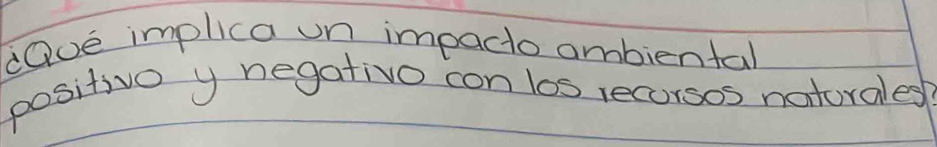 ¿Qué implica un impacto ambiental
positivo y negativo con los recursos naturales?